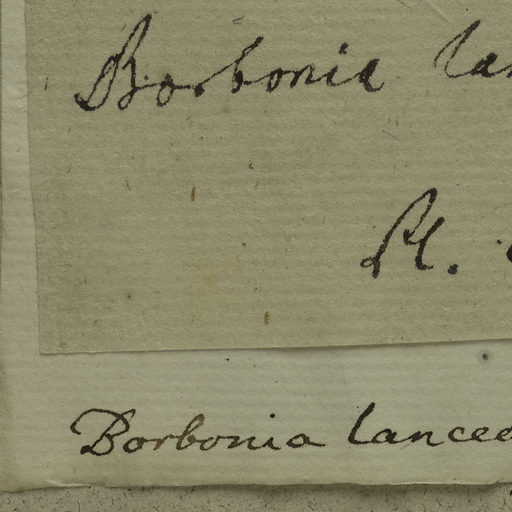 Borbonia lan
Pl.
Borbonia lanceo